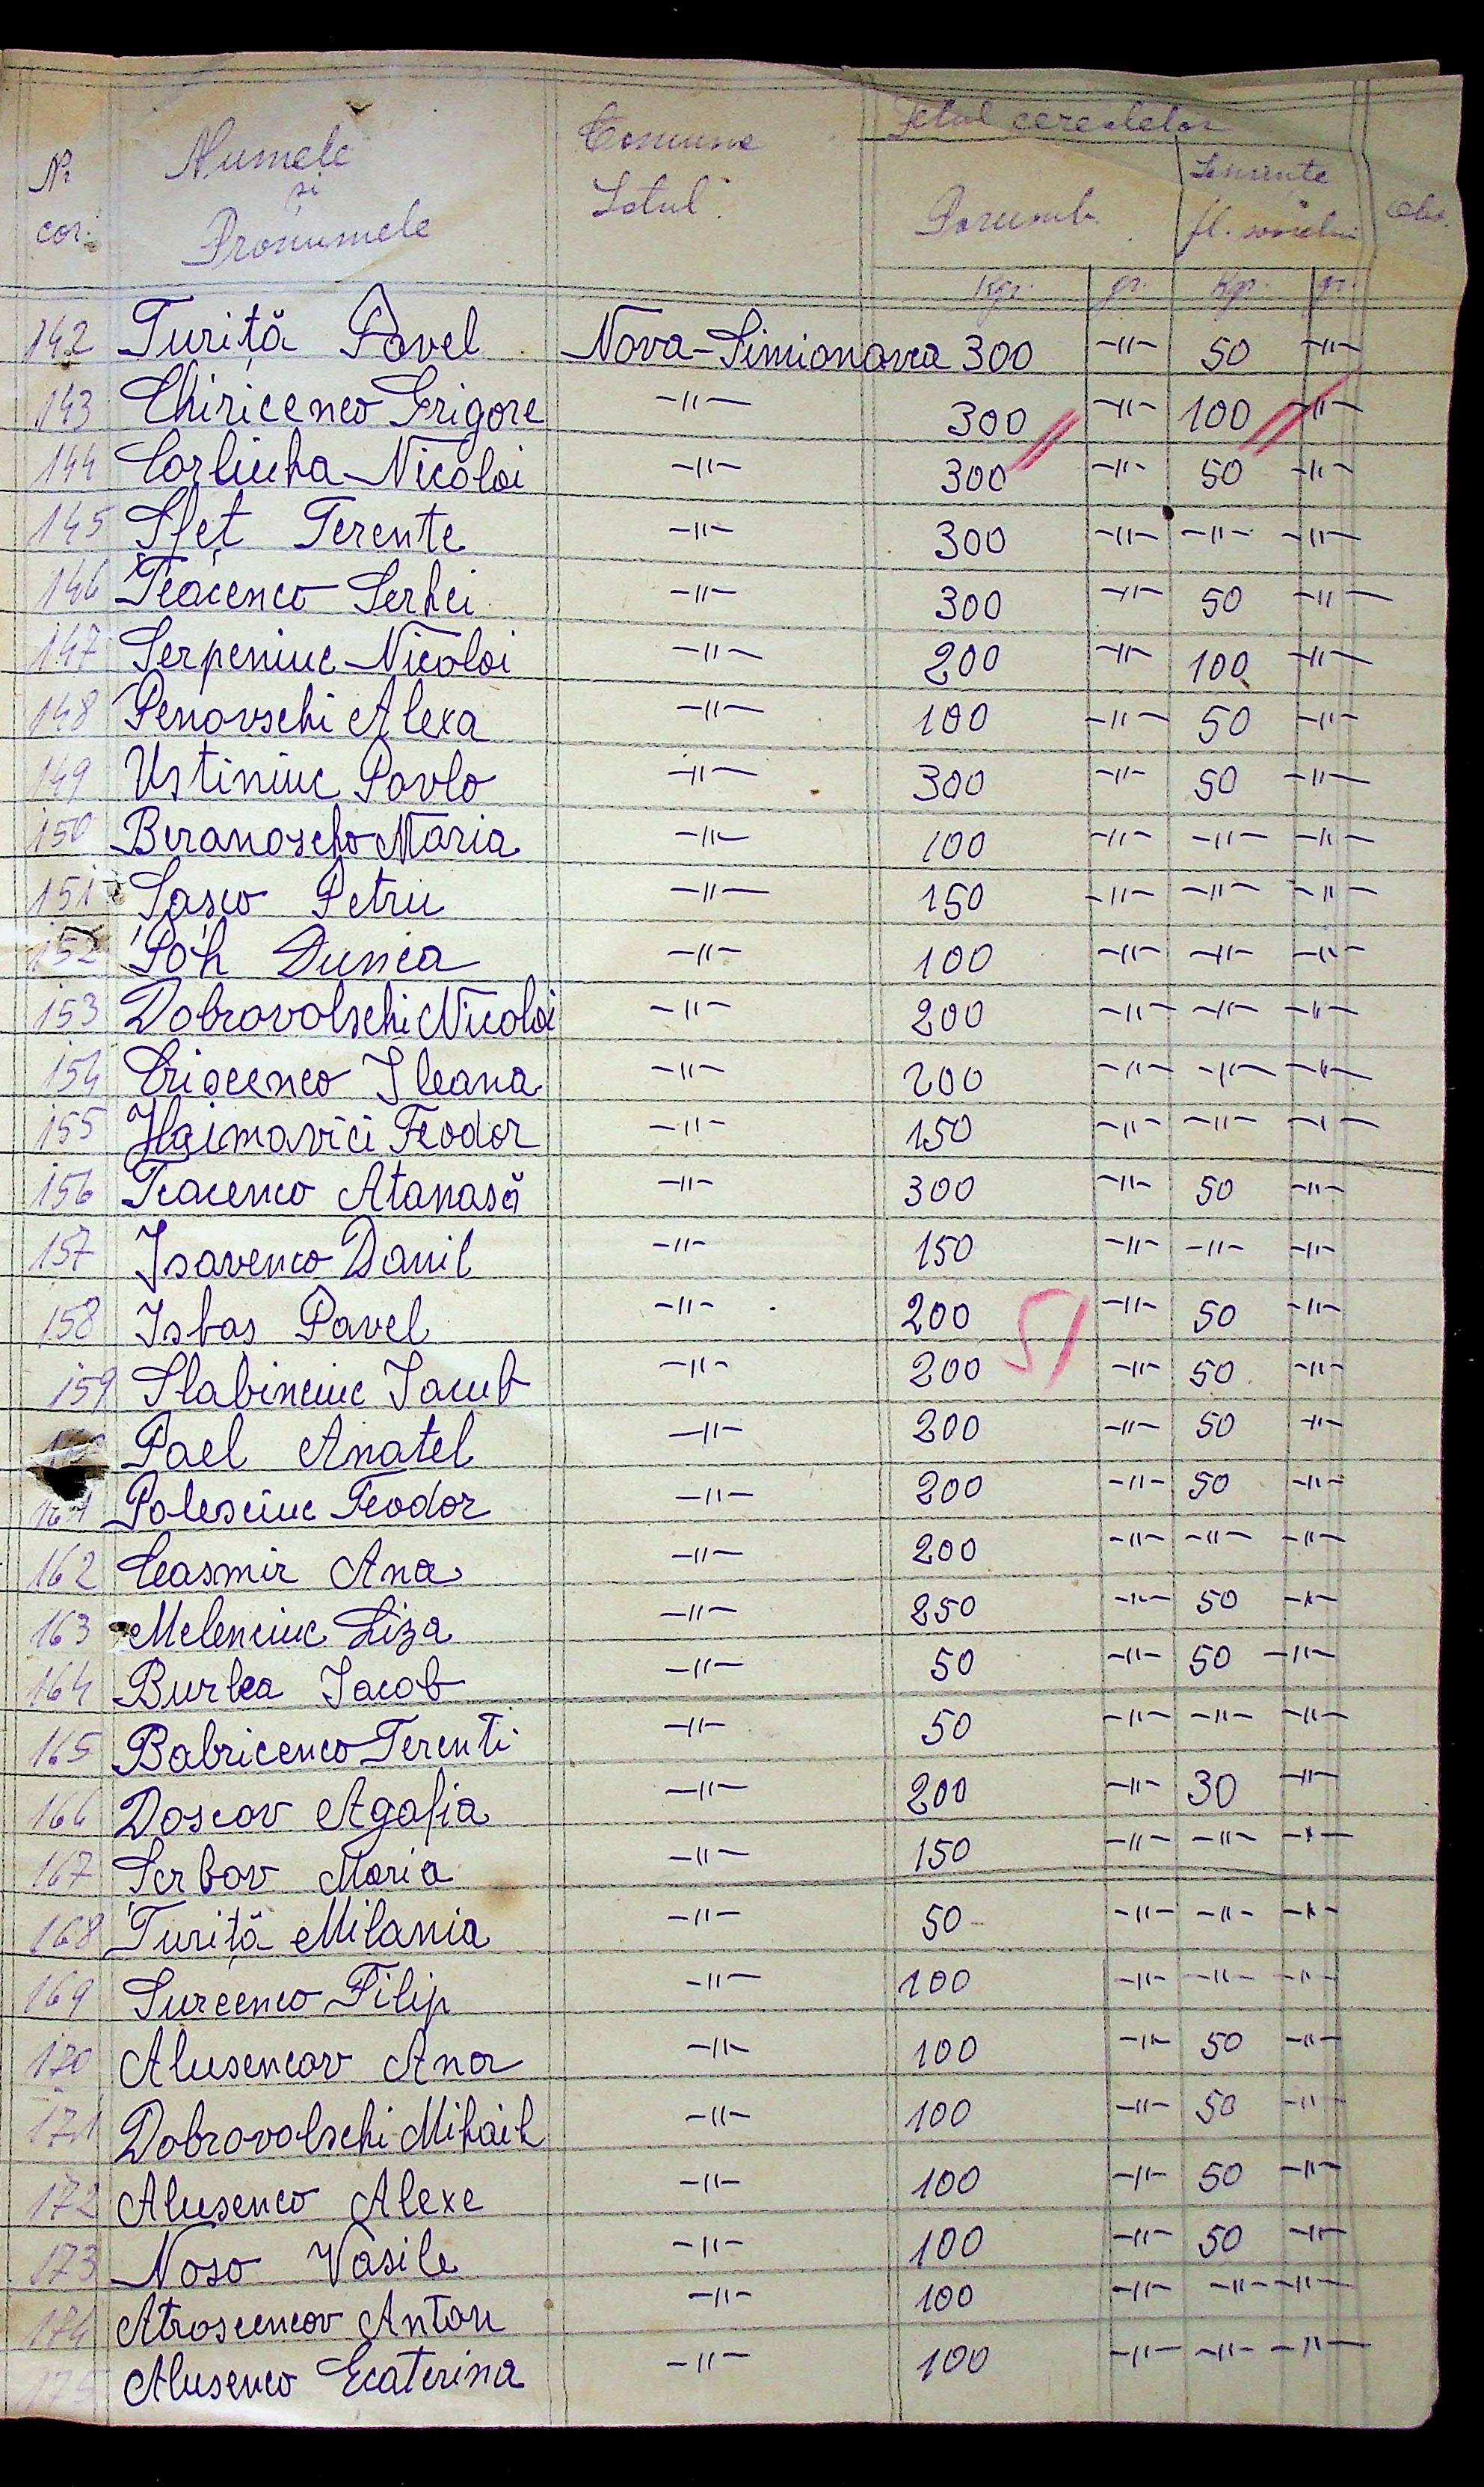 Nr. cor. Numele și Pronumele Comuna Satul Felul cerealelor Obs.
Porumb Seminte fl. soarelui
Kgr. gr. Kgr. gr.
142 Turiță Pavel Nova-Simionovca 300 -"- 50 -"-
143 Chiricenco Grigore -"- 300 -"- 100 -"-
144 Corliuha Nicolai -"- 300 -"- 50 -"-
145 Sfeț Terente -"- 300 -"- -"- -"-
146 Tcacenco Serhei -"- 300 -"- 50 -"-
147 Serpeniuc Nicolai -"- 200 -"- 100 -"-
148 Penovschi Alexa -"- 100 -"- 50 -"-
149 Ustiniuc Pavlo -"- 300 -"- 50 -"-
150 Maria -"- 100 -"- -"- -"-
151 Sașco Petru -"- 150 -"- -"- -"-
152 Dunea -"- 100 -"- -"- -"-
153 Dobrovolschi Nicolai -"- 200 -"- -"- -"-
154 Ileana -"- 200 -"- -"- -"-
155 Haimovici Feodor -"- 150 -"- -"- -"-
156 Tcacenco Atanasă -"- 300 -"- 50 -"-
157 Isavenco Danil -"- 150 -"- -"- -"-
158 Isbaș Pavel -"- 200 51 -"- 50 -"-
159 Slabinciuc Iacub -"- 200 -"- 50 -"-
Pael Anatel -"- 200 -"- 50 -"-
161 Polesciuc Feodor -"- 200 -"- 50 -"-
162 Ceasmir Ana -"- 200 -"- -"- -"-
163 Melenciuc Liza -"- 250 -"- 50 -"-
164 Burlea Iacob -"- 50 -"- 50 -"-
165 Babricenco Terenti -"- 50 -"- -"- -"-
166 Doscov Agafia -"- 200 -"- 30 -"-
167 Serbov Maria -"- 150 -"- -"- -"-
168 Turiță Milania -"- 50 -"- -"- -"-
169 Surcenco Filip -"- 100 -"- -"- -"-
170 Alusencov Ana -"- 100 -"- 50 -"-
171 Dobrovolschi Mihail -"- 100 -"- 50 -"-
172 Alusenco Alexe -"- 100 -"- 50 -"-
173 Noso Vasile -"- 100 -"- 50 -"-
174 Atroscencov Anton -"- 100 -"- -"- -"-
175 Alusenco Ecaterina -"- 100 -"- -"- -"-